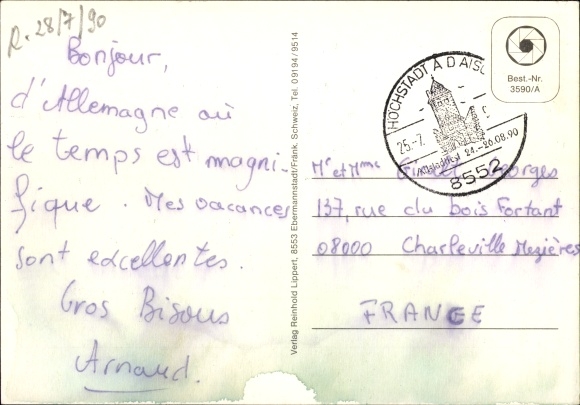 R. 28/7/90
Bonjour,
d'Allemagne où
le temps est magni-
fique. Mes vacances
sont excellentes.
Gros Bisous
Arnaud.
Verlag Reinhold Lippert, 8553 Ebermannstadt/Fränk. Schweiz, Tel. 09194/9514
HÖCHSTADT A D AISC
25.-7.
Altstadtfest 24.-26.08.90
8552
Best.-Nr.
3590/A
Mr et Mme Georges
137, rue du bois Fortant
08000 Charleville Mezières
FRANCE